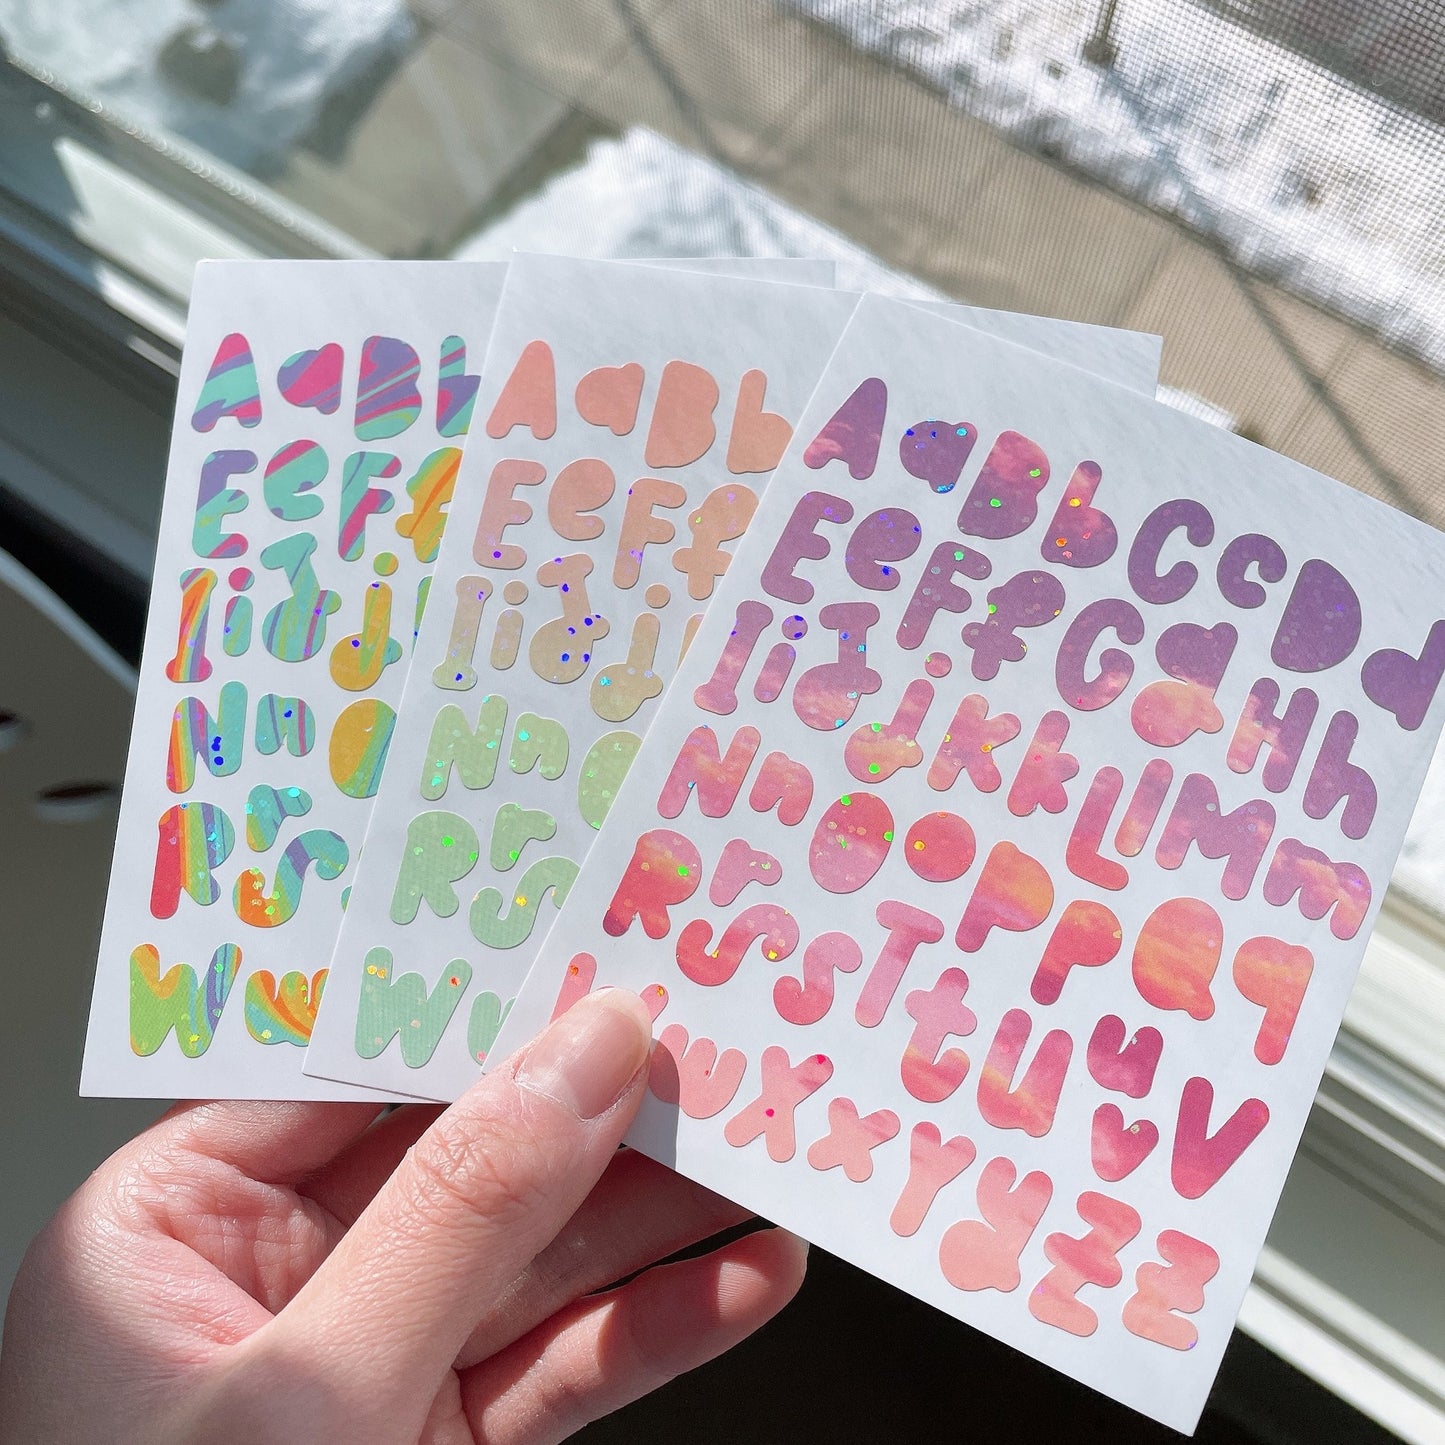 A a B b
E e F f
I i J j
N n O
R r S s
W w
A a B b
E e F f
I i J j
N n O
R r S
W w
A a B b C c D d
E e F f G g H h
I i J j K k L l M m
N n O o P p Q q
R r S s T t U u V v
W w X x Y y Z z